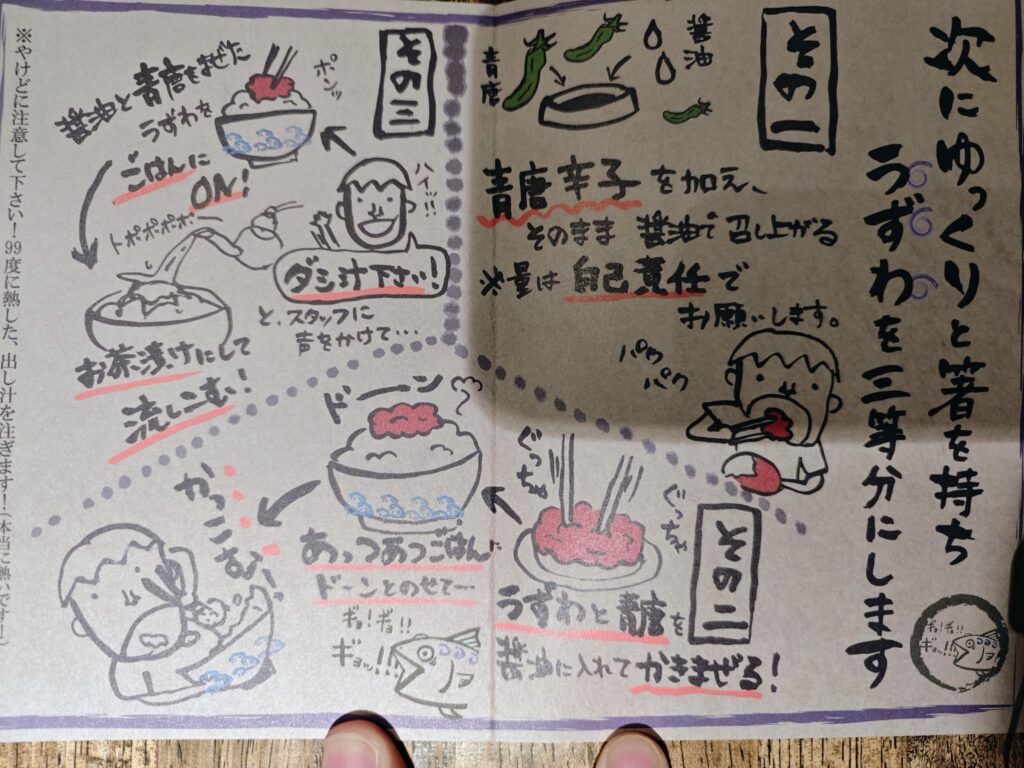 次にゆっくりと箸を持ち
うずわを三等分にします
その一
醤油
青唐
青唐辛子を加え、
そのまま醤油で召し上がる
※量は自己責任で
お願いします。
パク
パク
その二
ぐっちゃ
ぐっちゃ
うずわと青唐を
醤油に入れてかきまぜる!
ドーン
あっつあつごはんに
ドーンとのせて…
かっこむ!
ギョ!ギョ!!
ギョッ!!
ギョ!ギョ!!
ギョッ!!
その三
ポンッ
醤油と青唐をまぜた
うずわを
ごはんに
ON!
ハイッ!!
ダシ汁下さい!
と、スタッフに
声をかけて…
トポポポポ
お茶漬けにして
流しこむ!
※やけどに注意して下さい!99度に熱した、出し汁を注ぎます!(本当に熱いです!)